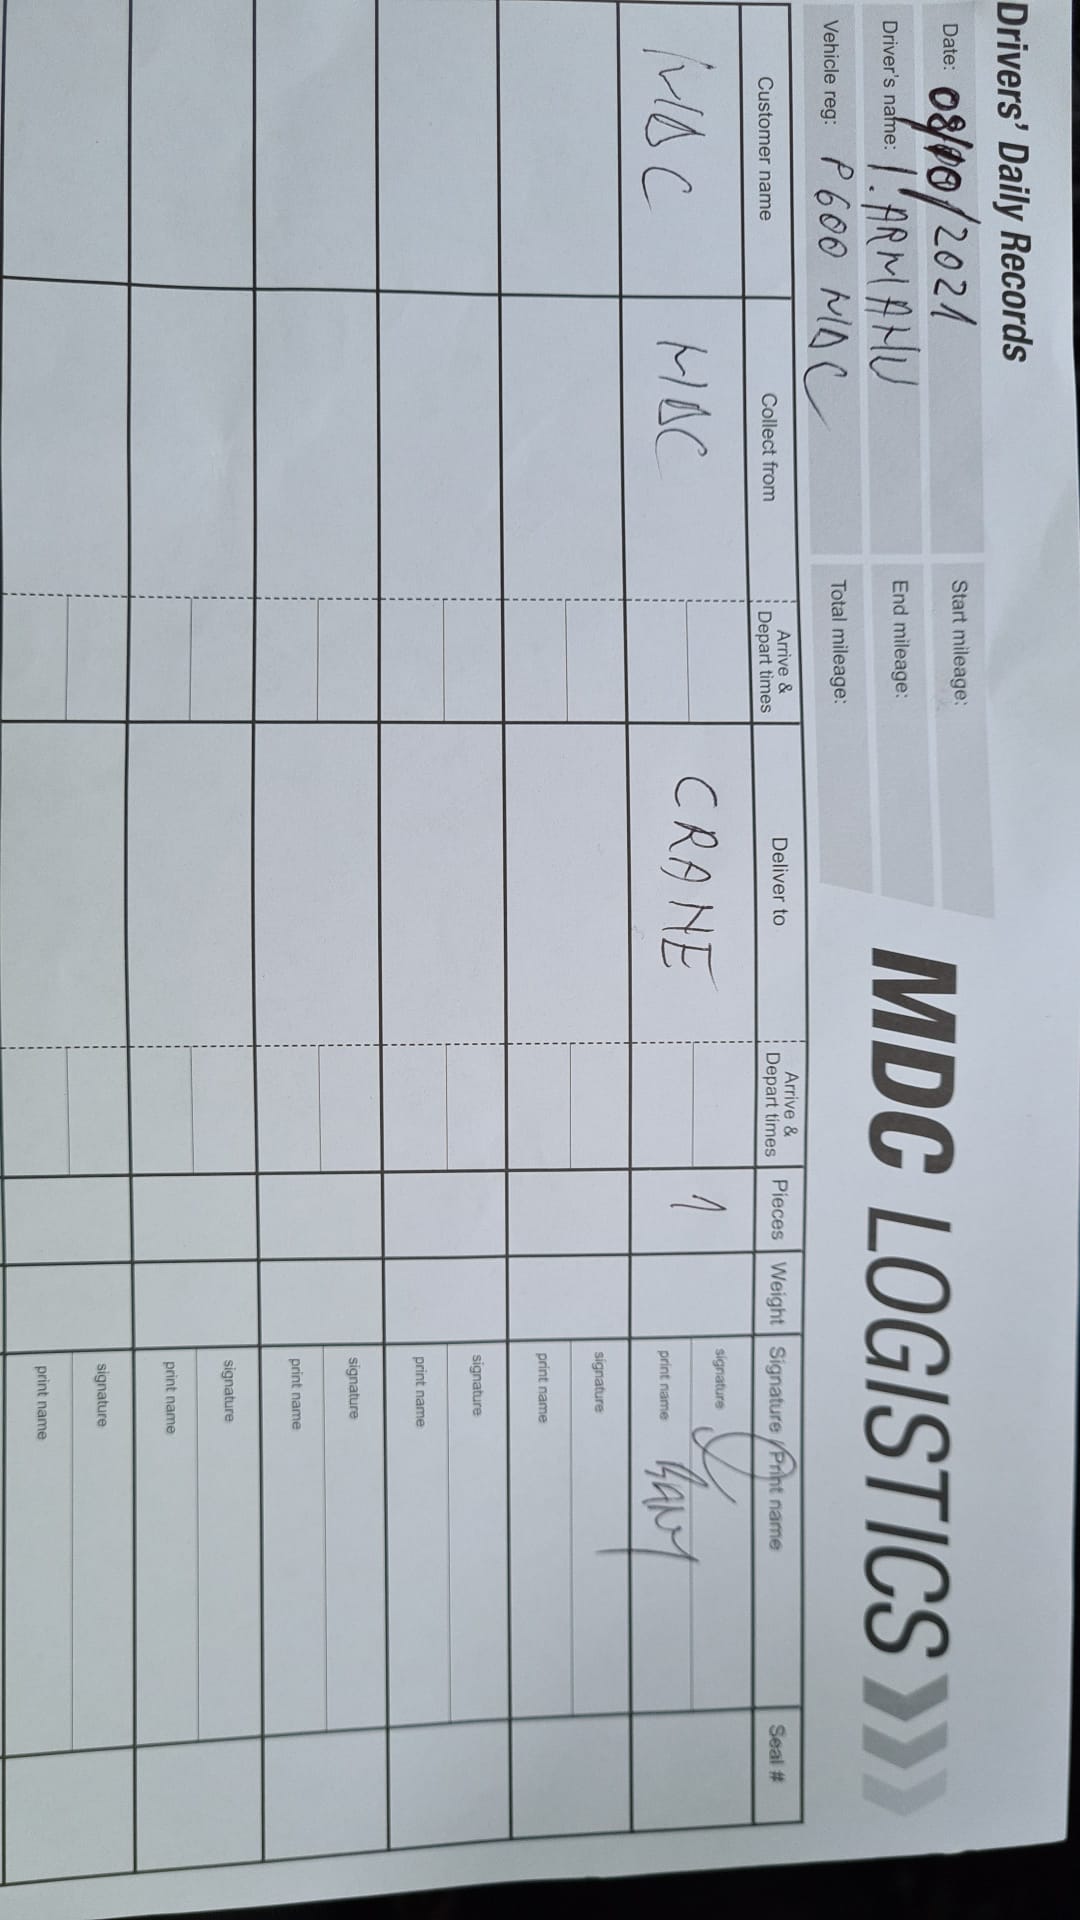 Drivers' Daily Records
Date: 08/10/2021
Start mileage:
Driver's name: I. ARMANU
End mileage:
Vehicle reg: P600 MDC
Total mileage:
MDC LOGISTICS
Customer name Collect from Arrive & Depart times Deliver to Arrive & Depart times Pieces Weight Signature / Print name Seal #
MDC MDC CRANE 1 signature
print name
signature
print name
signature
print name
signature
print name
signature
print name
signature
print name